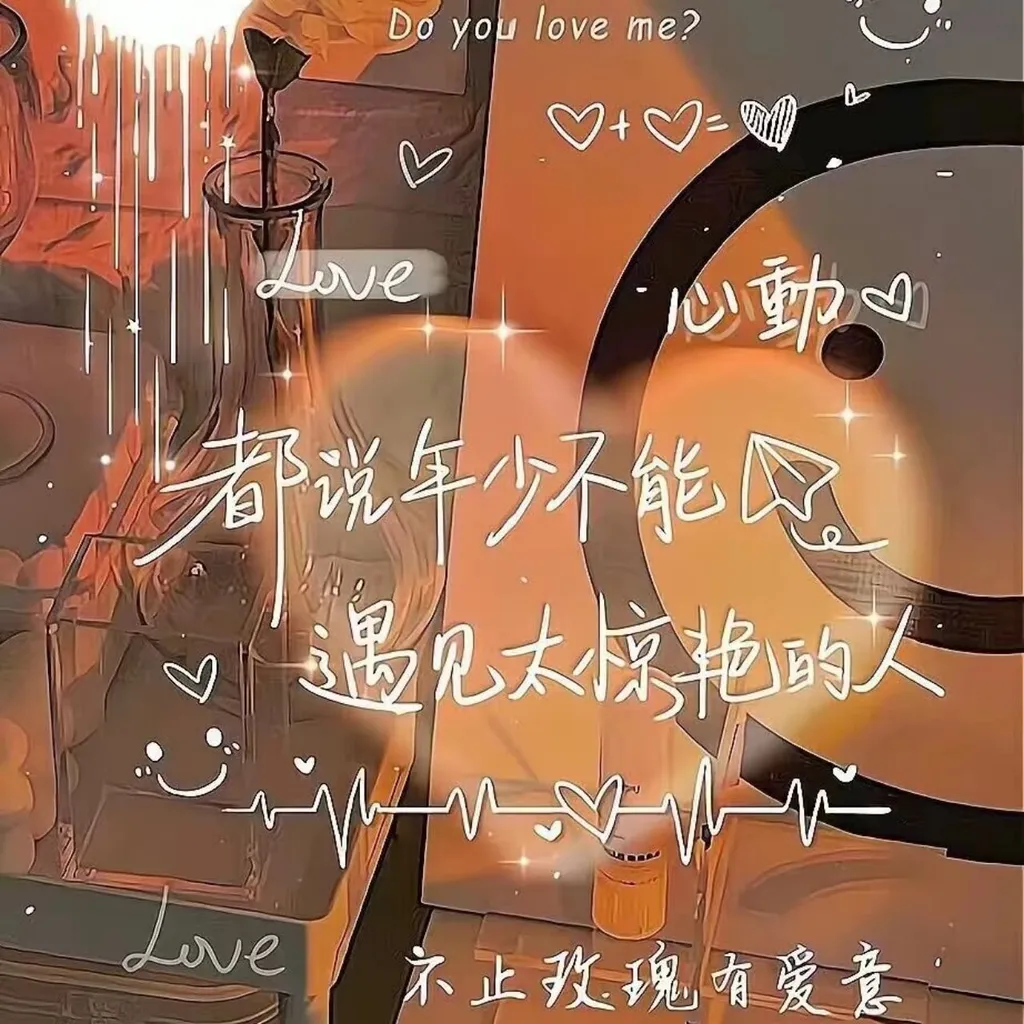 Do you love me?
♡+♡=♡
Love
心動
都说年少不能
遇见太惊艳的人
Love
不止玫瑰有爱意